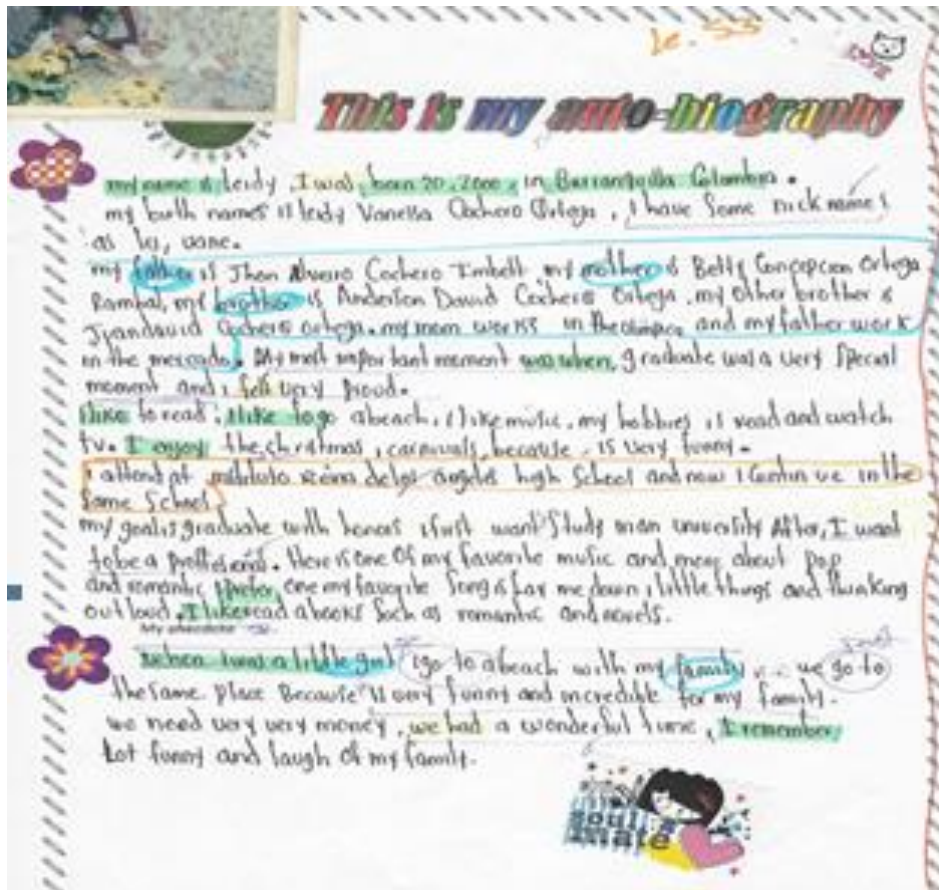 This is my auto-biography
my name is leidy , I was born 20, 2000 , in Barranquilla Colombia .
my birth names is leidy Vanessa Cochero Ortega , I have some nick names
as ley, vane.
my father is Jhon Alveiro Cochero Imbett my mother is Betty Concepcion Ortega
my brother is Anderson David Cochero Ortega . my other brother is
Cochero ortega . my mom works in the and my father work
in the mercado . My most important moment was when, graduate was a very special
moment and i fell very proud .
i like to read , I like to go a beach, i like music , my hobbies is read and watch
tv . I enjoy the christmas , carnivals, because . is very funny .
I attend at instituto reina delos angeles high school and now i continue in the
same school
my goal is graduate with honors i first want study in an university After, I want
to be a . Here is one Of my favorite music and more about pop
and romantic I prefer, one my favorite song is for me down , little things and thinking
out loud . I like read a books such as romantic and novels .
My anecdote
when I was a little girl i go to a beach with my family we go to
the same place Because is very funny and incredible for my family .
we need very very money , we had a wonderful time , I remember
Lot funny and laugh Of my family .
soul
mate